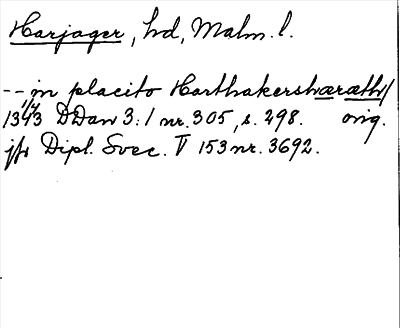 Harjager, hd, Malm. l.
-- in placito Harthakershæræth/
1/4
1343 DDan 3:1 nr. 305, s. 298. orig.
jfr Dipl. Svec. V 153 nr. 3692.